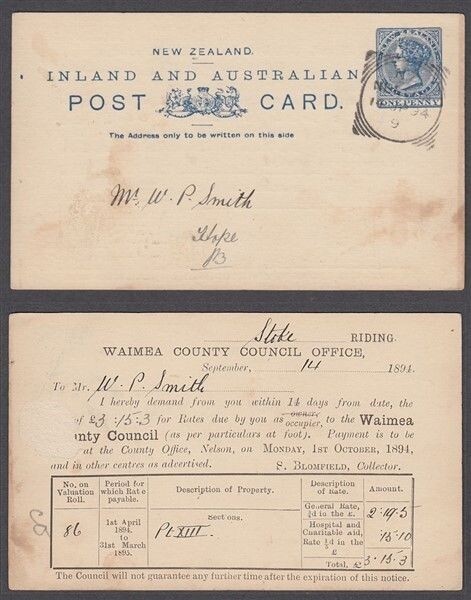 NEW ZEALAND.
INLAND AND AUSTRALIAN
POST CARD.
The Address only to be written on this side
NEW ZEALAND
ONE PENNY
94
9
Mr W. P. Smith
Hope
Stoke RIDING.
WAIMEA COUNTY COUNCIL OFFICE,
September, 14 1894.
To Mr. W. P. Smith
I hereby demand from you within 14 days from date, the
of £3:15:3 for Rates due by you as owner/occupier, to the Waimea
unty Council (as per particulars at foot). Payment is to be
at the County Office, Nelson, on MONDAY, 1ST OCTOBER, 1894,
and in other centres as advertised. S. BLOMFIELD, Collector.
No. on Valuation Roll. Period for which Rate payable. Description of Property. Description of Rate. Amount.
86 1st April 1894. to 31st March 1895. Sections. Pt XIII. General Rate, ¾d in the £. 2.19.5
Hospital and Charitable Aid, Rate ⅕d in the £ 15.10
Total, £ 3.15.3
The Council will not guarantee any further time after the expiration of this notice.